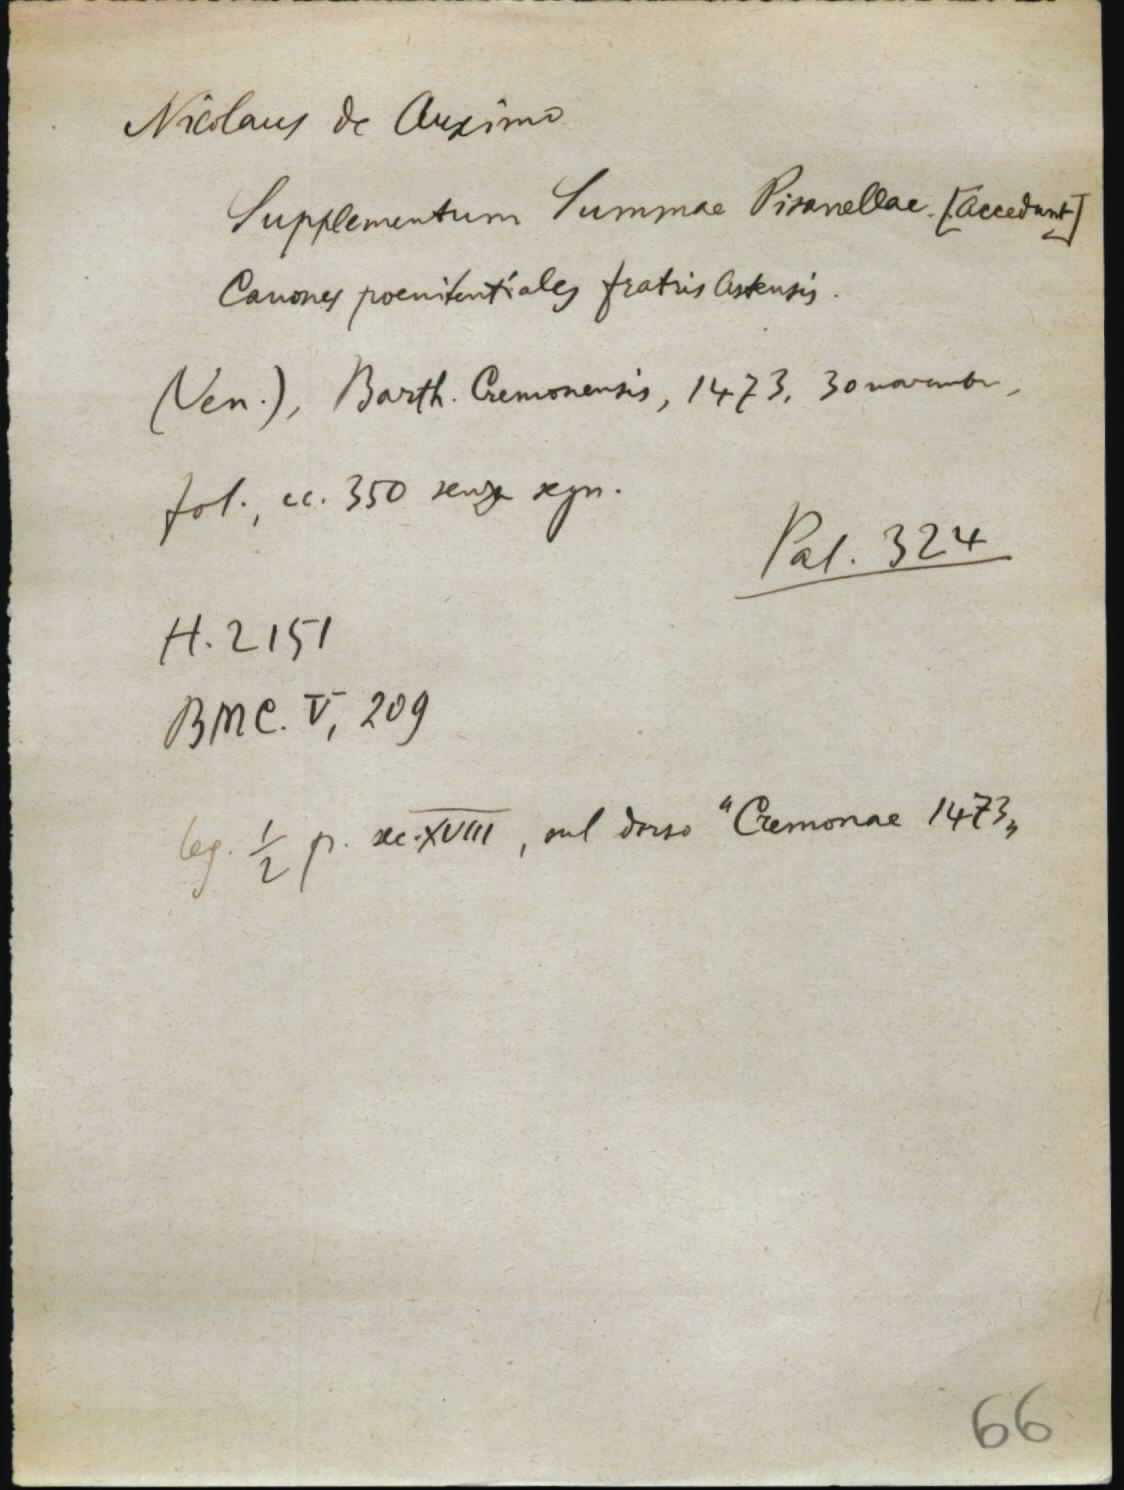 Nicolaus de Auximo
Supplementum Summae Pisanellae. [Accedunt]
Canones poenitentiales fratris Astensis.
(Ven.), Barth. Cremonensis, 1473, 30 novembr,
fol., cc. 350 senza segn.
Pal. 324
H. 2151
BMC. V, 209
leg. 1/2 p. sec. XVIII, sul dorso "Cremonae 1473„
66